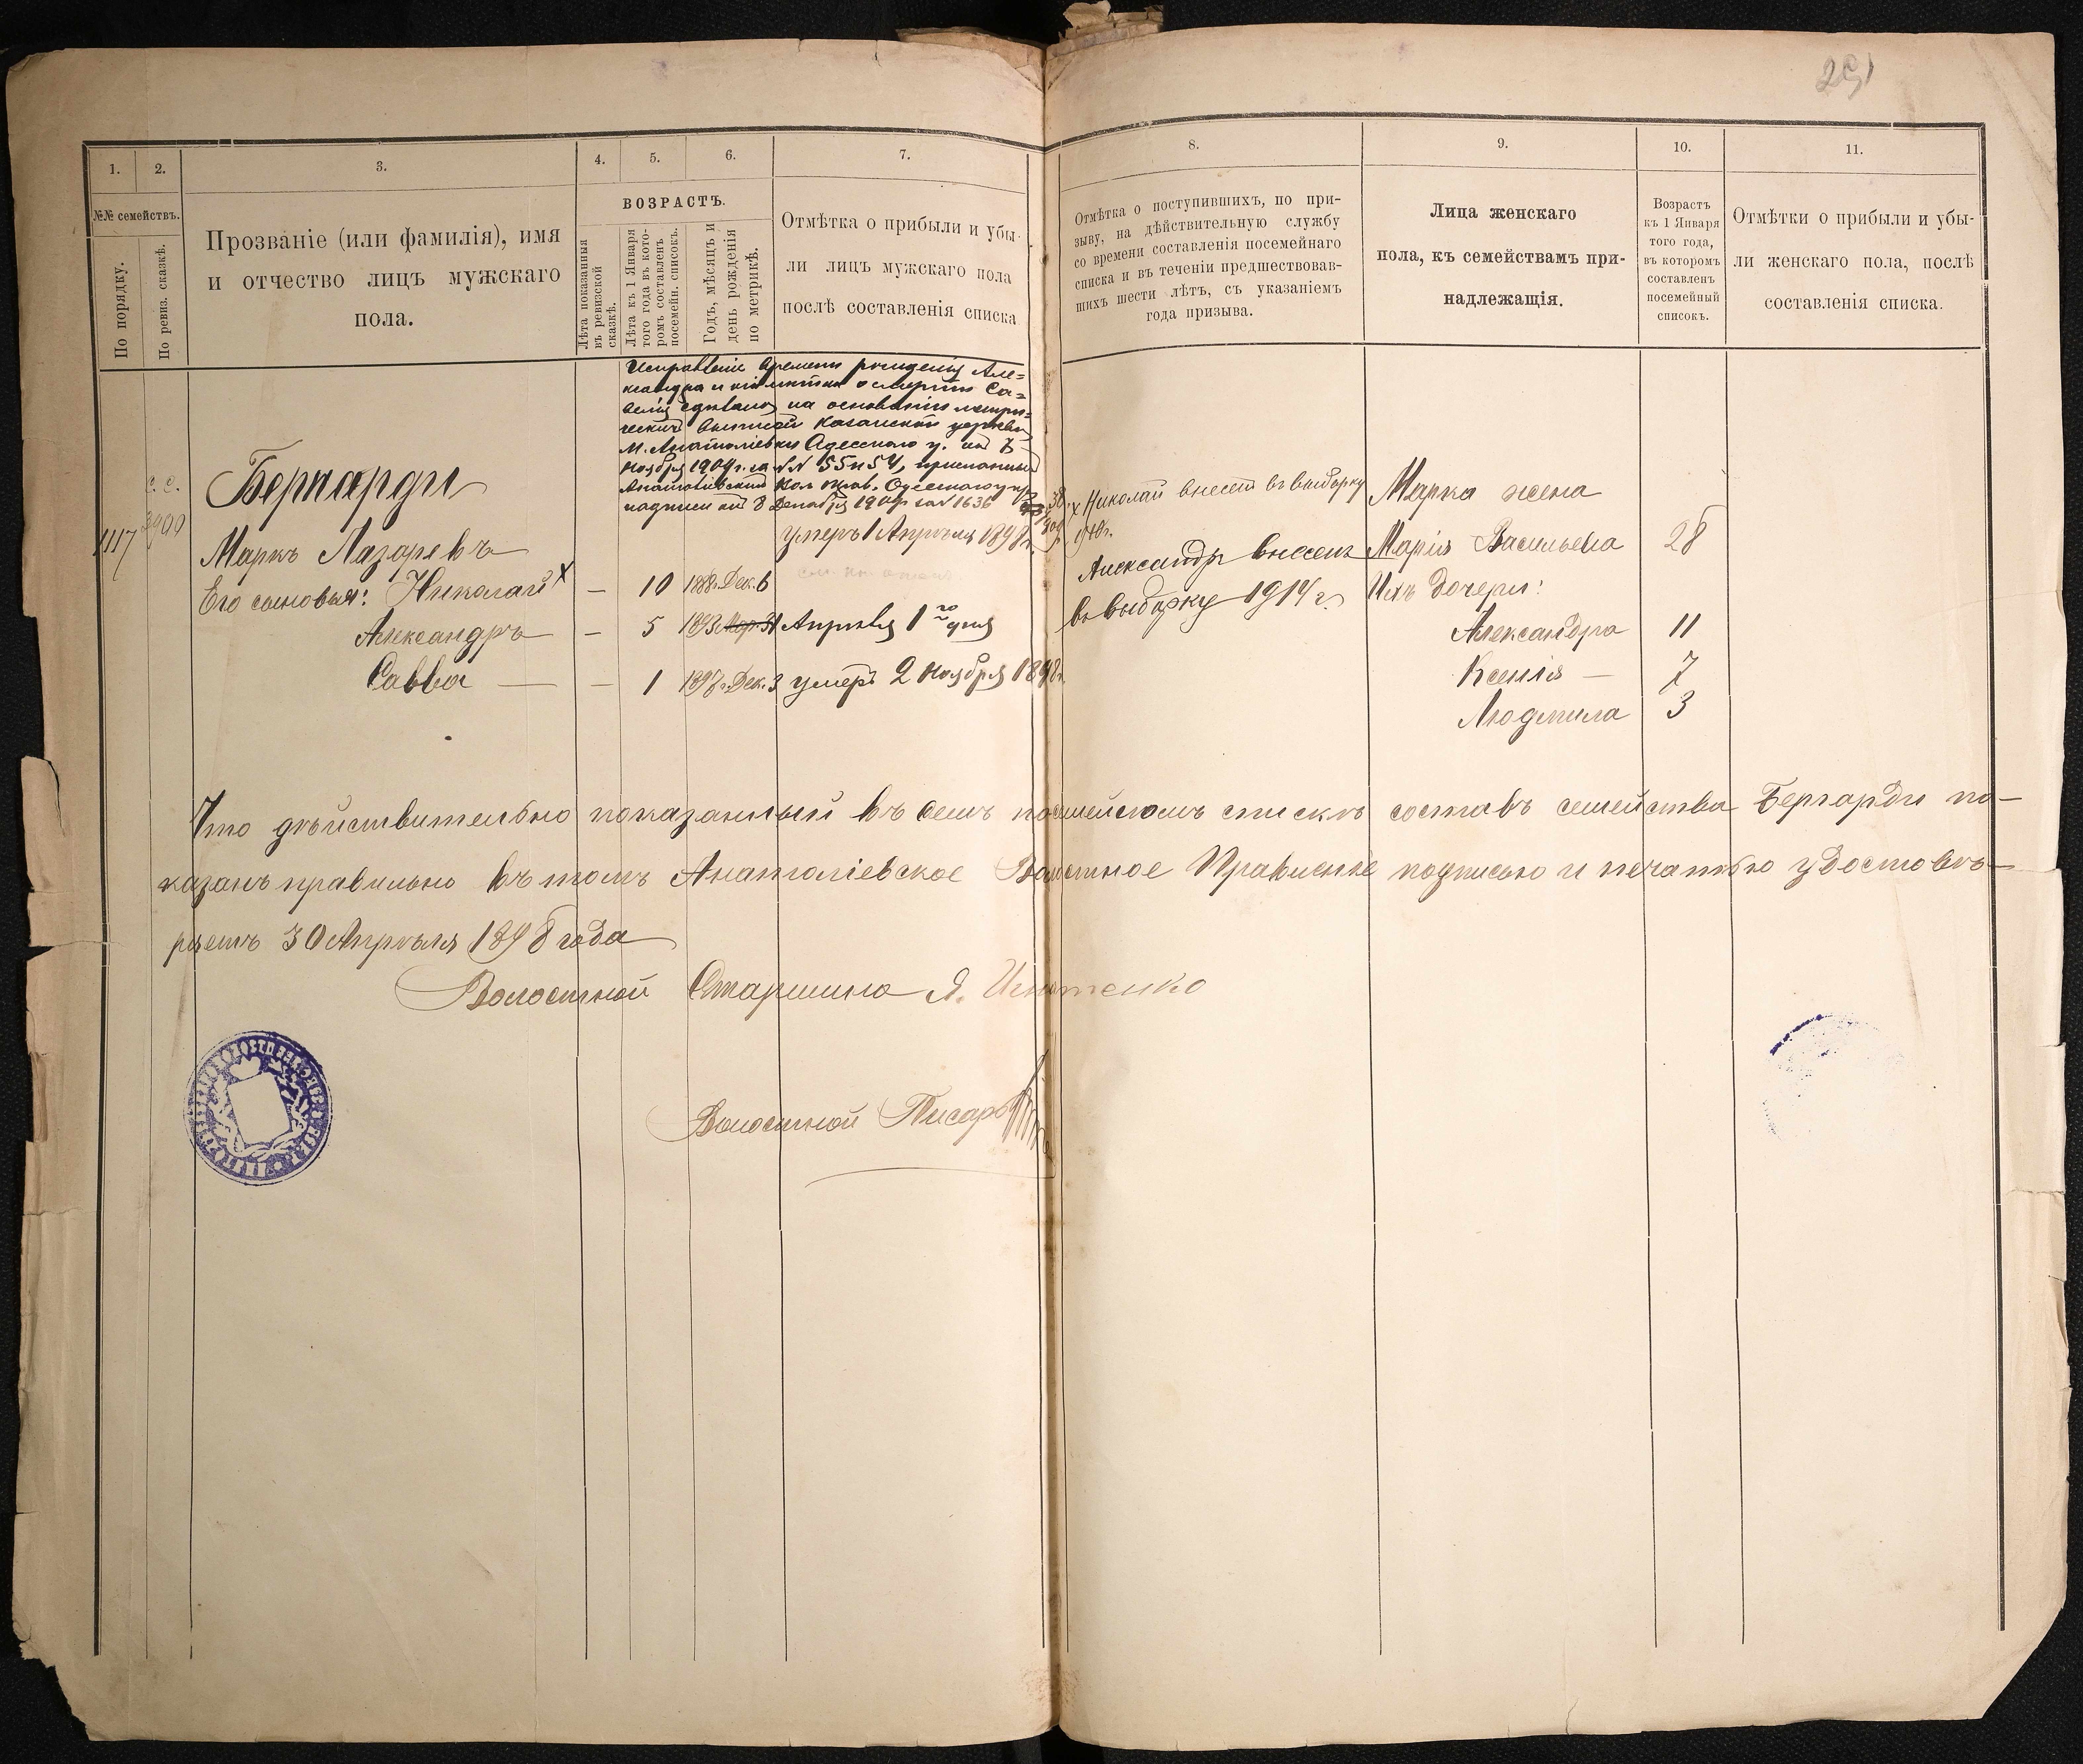 291
1.
2.
3.
4.
5.
6.
7.
8.
9.
10.
11.
№№ семействъ.
По порядку.
По ревиз. сказкѣ.
Прозваніе (или фамилія), имя
и отчество лицъ мужскаго
пола.
ВОЗРАСТЪ.
Лѣта показанныя
въ ревизской
сказкѣ.
Лѣта къ 1 Января
того года въ кото-
ромъ составленъ
посемейн. списокъ.
Годъ, мѣсяцъ и
день рожденія
по метрикѣ.
Отмѣтка о прибыли и убы-
ли лицъ мужскаго пола
послѣ составленія списка
Отмѣтка о поступившихъ, по при-
зыву, на дѣйствительную службу
со времени составленія посемейнаго
списка и въ теченіи предшествовав-
шихъ шести лѣтъ, съ указаніемъ
года призыва.
Лица женскаго
пола, къ семействамъ при-
надлежащія.
Возрастъ
къ 1 Января
того года,
въ которомъ
составленъ
посемейный
списокъ.
Отмѣтки о прибыли и убы-
ли женскаго пола, послѣ
составленія списка.
Исправленіе времени рожденія Але-
ксандра и отмѣтка о смерти Са-
ввы сдѣлано на основаніи метри-
ческихъ выписей Казанской церкви
М. Анатоліевки Одесскаго у. отъ 7
Ноября 1909 г. за №№ 55 и 54, присланныхъ
Анатоліевскимъ Вол. прав. Одесскаго у. при
надписи отъ 8 Декабря 1909 г. за № 1636
1117
с. с.
Бернарди
Маркъ Лазаревъ
умеръ 1 Апрѣля 1898 г.
Его сыновья: Николай х — 10 1888 г. Дек. 6
Александръ — 5 1893 Мар. 31 Апрѣля 1го дня
Савва — — 1 1897 г. Дек. 3 умеръ 2 Ноября 1898 г.
х Николай внесенъ въ выборку
1910 г.
Александръ внесенъ
въ выборку 1914 г.
Марка жена
Марія Васильева 28
Ихъ дочери:
Александра 11
Ксенія — 7
Людмила 3
Что дѣйствительно показанный въ семъ посемейномъ спискѣ составъ семейства Бернарди по-
казанъ правильно въ томъ Анатоліевское Волостное Правленіе подписью и печатью удостовѣ-
ряетъ 30 Апрѣля 1898 года
Волостной Старшина Я. Игнатенко
Волостной Писарь